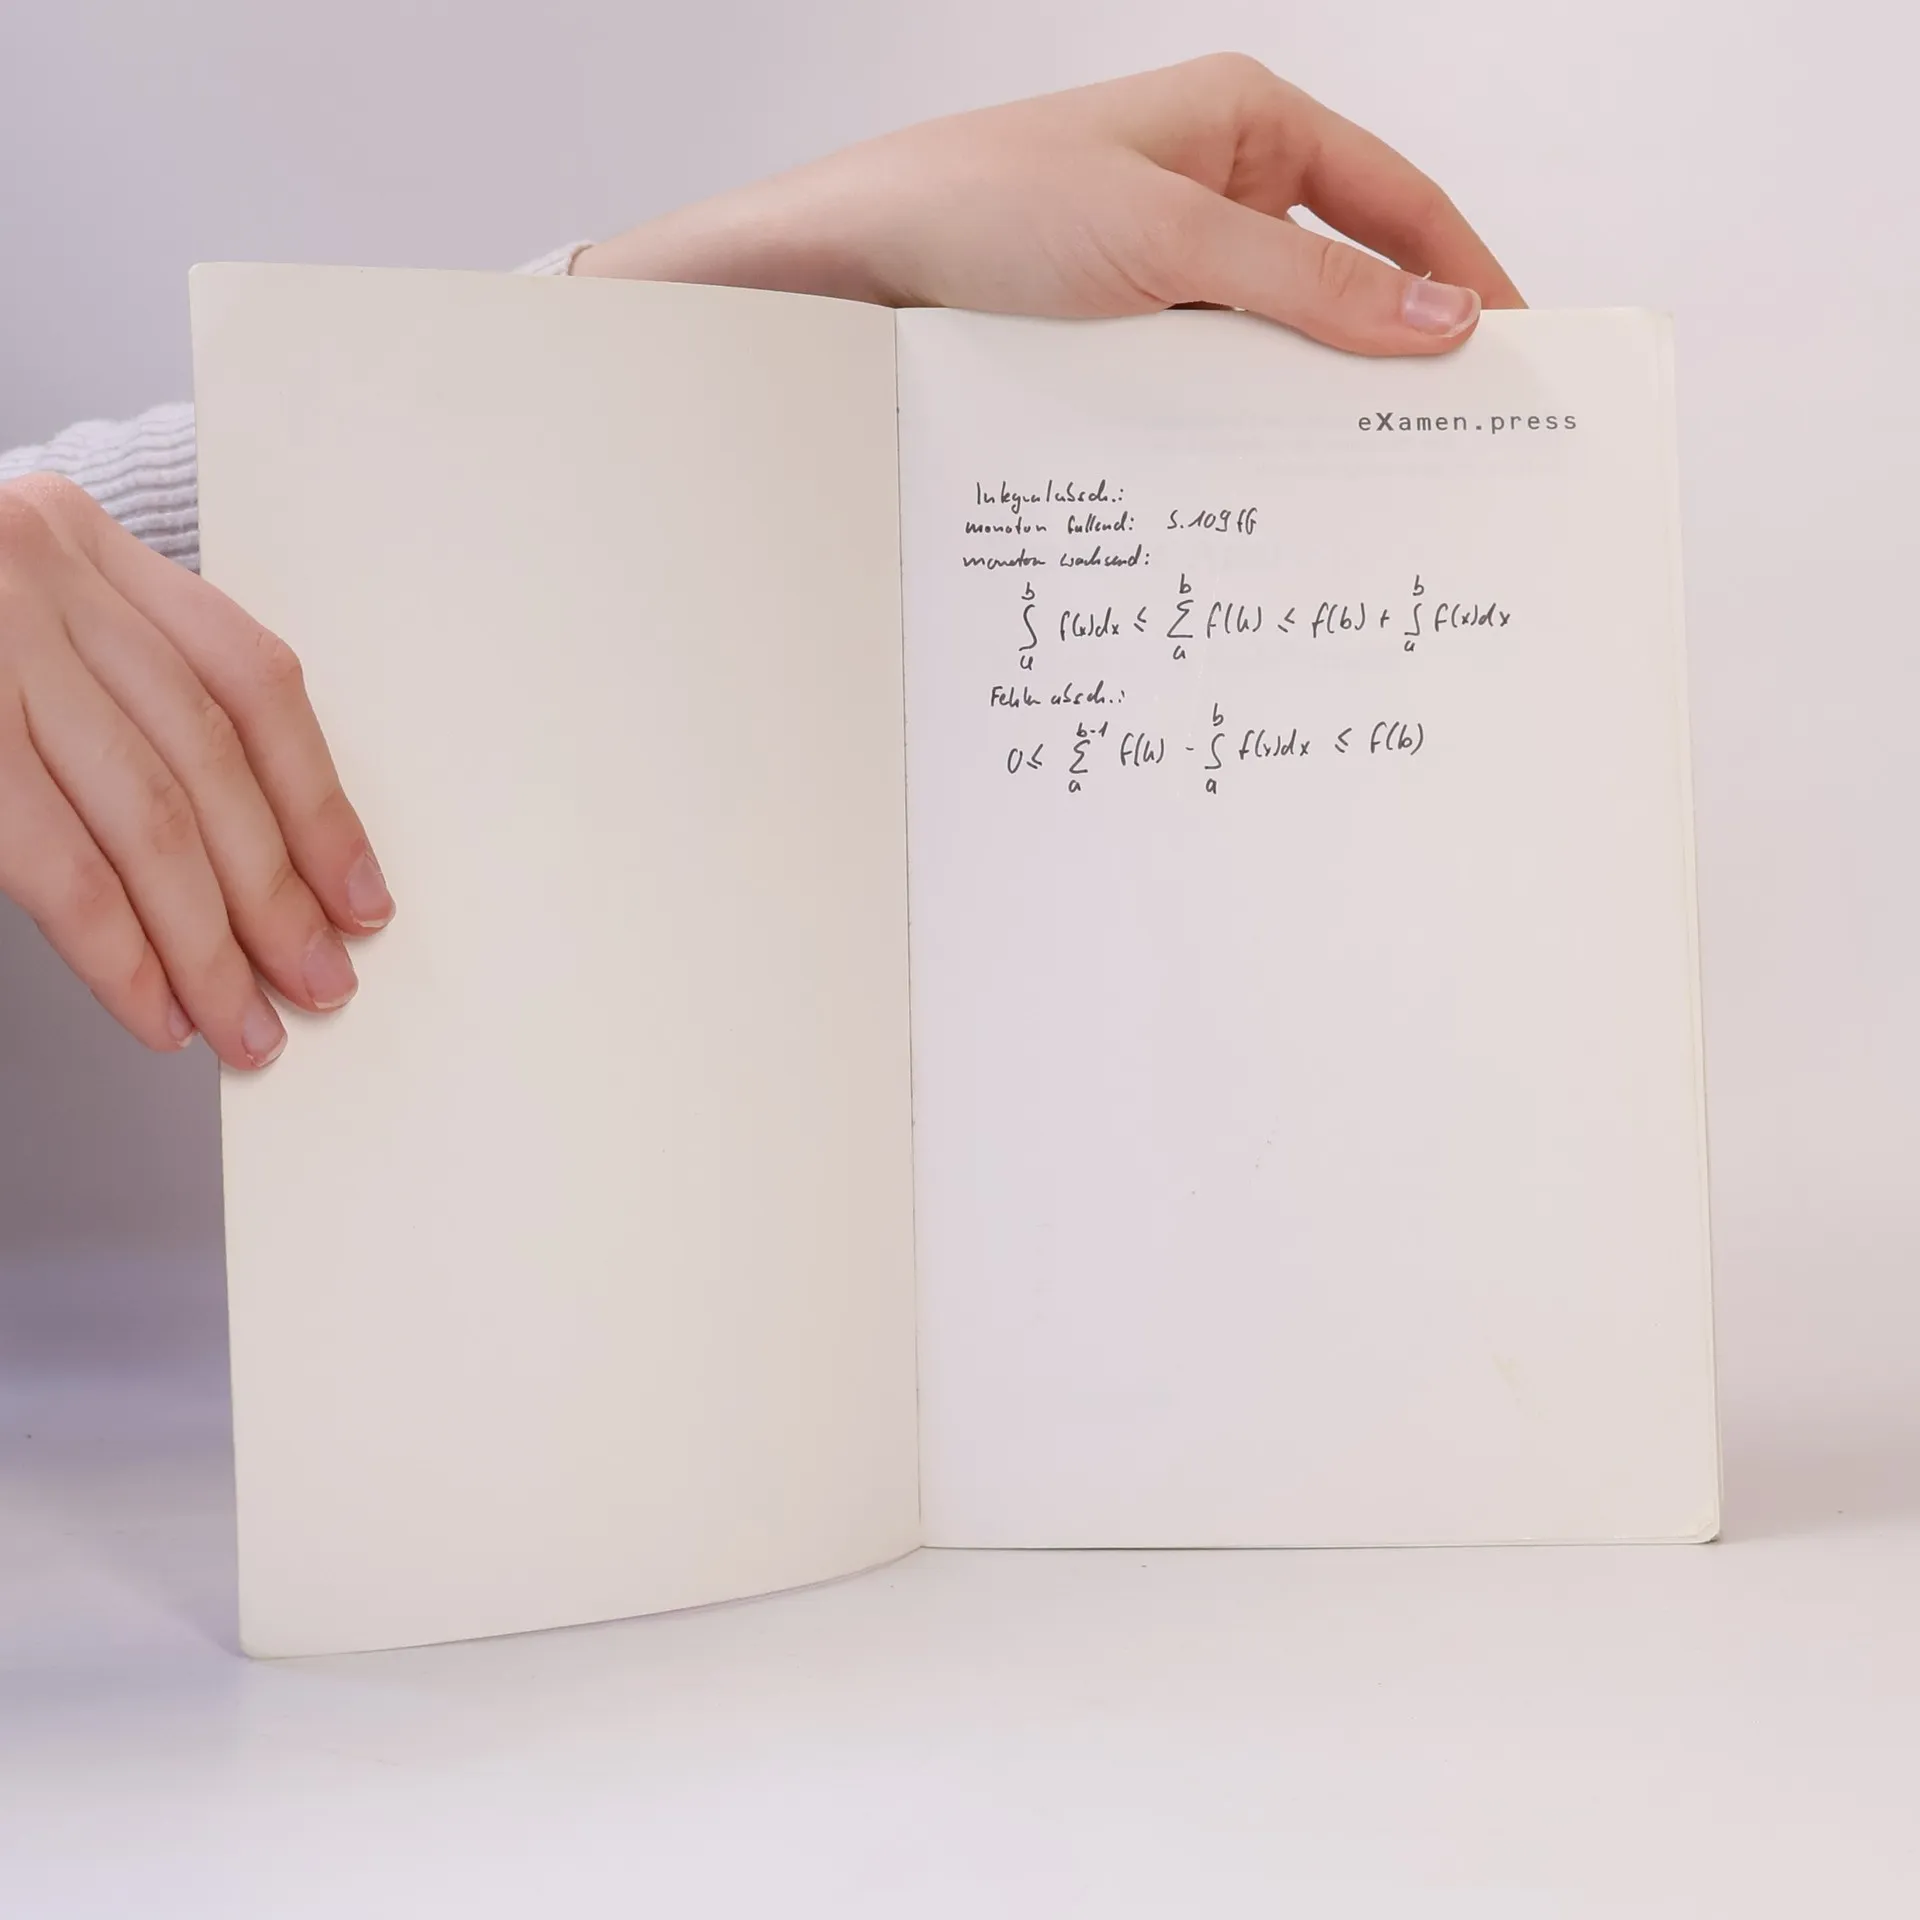 eXamen.press
Integralabsch.:
monoton fallend: S. 109 ff
monoton wachsend:
∫_a^b f(x)dx ≤ ∑_a^b f(k) ≤ f(b) + ∫_a^b f(x)dx
Fehlerabsch.:
0 ≤ ∑_a^{b-1} f(k) - ∫_a^b f(x)dx ≤ f(b)